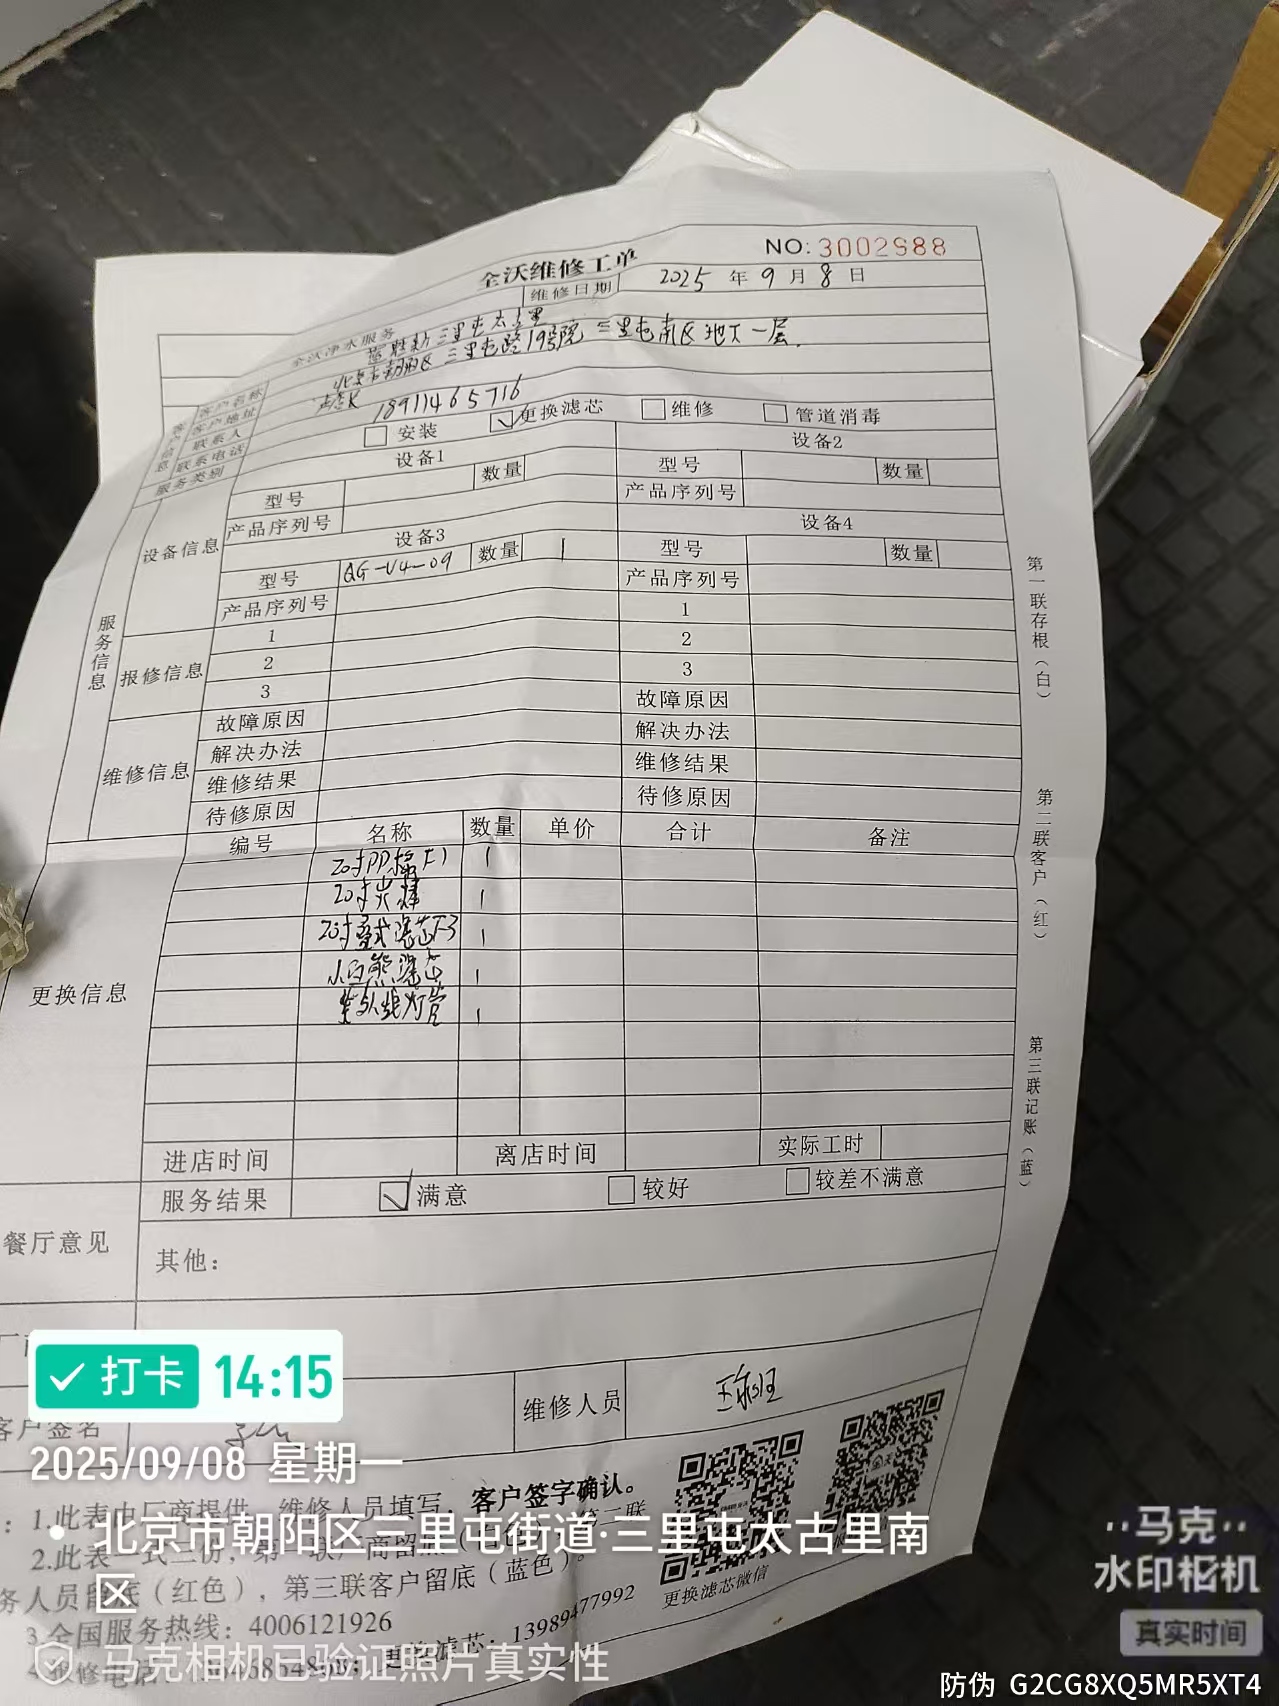 NO:3002988
全沃维修工单
维修日期 2025 年 9 月 8 日
全沃净水服务
客户信息
客户名称 三里屯太古里
客户地址 北京市朝阳区三里屯路19号院 三里屯南区地下一层
联系人
联系电话 18911465716
服务类别 安装 更换滤芯 维修 管道消毒
服务信息
设备信息
设备1 设备2
型号 数量 型号 数量
产品序列号 产品序列号
设备3 设备4
型号 QG-U4-09 数量 1 型号 数量
产品序列号 产品序列号
报修信息
1 1
2 2
3 3
维修信息
故障原因 故障原因
解决办法 解决办法
维修结果 维修结果
待修原因 待修原因
更换信息
编号 名称 数量 单价 合计 备注
20寸PP棉F1 1
20寸炭棒 1
20寸叠式滤芯F3 1
小白熊滤芯 1
紫外线灯管 1
进店时间 离店时间 实际工时
餐厅意见
服务结果 满意 较好 较差不满意
其他：
客户签名 维修人员
1.此表由厂商提供，维修人员填写，客户签字确认。
2.此表一式三份，第一联厂商留底
务人员留底（红色），第三联客户留底（蓝色）。
3.全国服务热线：4006121926
更换滤芯：13989477992
更换滤芯微信
第一联存根（白）
第二联客户（红）
第三联记账（蓝）
打卡 14:15
2025/09/08 星期一
北京市朝阳区三里屯街道·三里屯太古里南
区
马克相机已验证照片真实性
马克
水印相机
真实时间
防伪 G2CG8XQ5MR5XT4